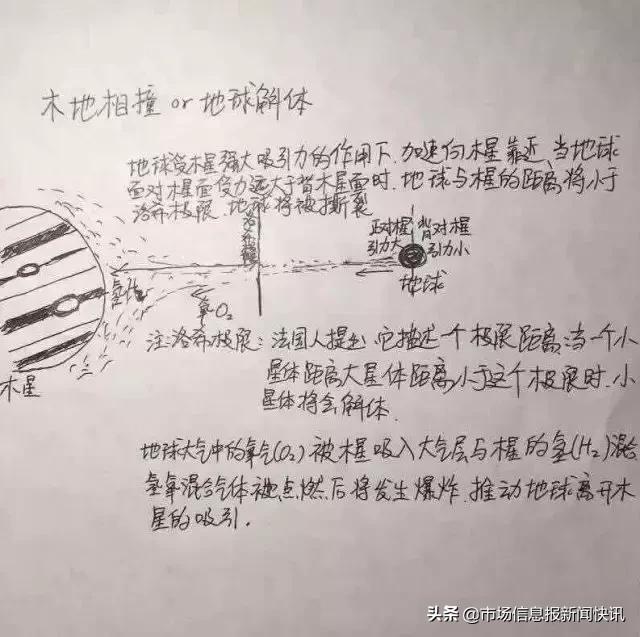 木地相撞 or 地球解体
地球受木星强大吸引力的作用下,加速向木星靠近,当地球
面对木星面受力远大于背木星面时,地球与木星的距离将小于
洛希极限,地球将被撕裂
洛希极限
正对木星
引力大
背对木星
引力小
地球
氢H₂
氧O₂
木星
注:洛希极限:法国人提出,它描述一个极限距离,当一个小
星体距离大星体距离小于这个极限时,小
星体将会解体.
地球大气中的氧气(O₂)被木星吸入大气层与木星的氢(H₂)混合
氢氧混合气体被点燃后将发生爆炸,推动地球离开木
星的吸引.
头条 @市场信息报新闻快讯